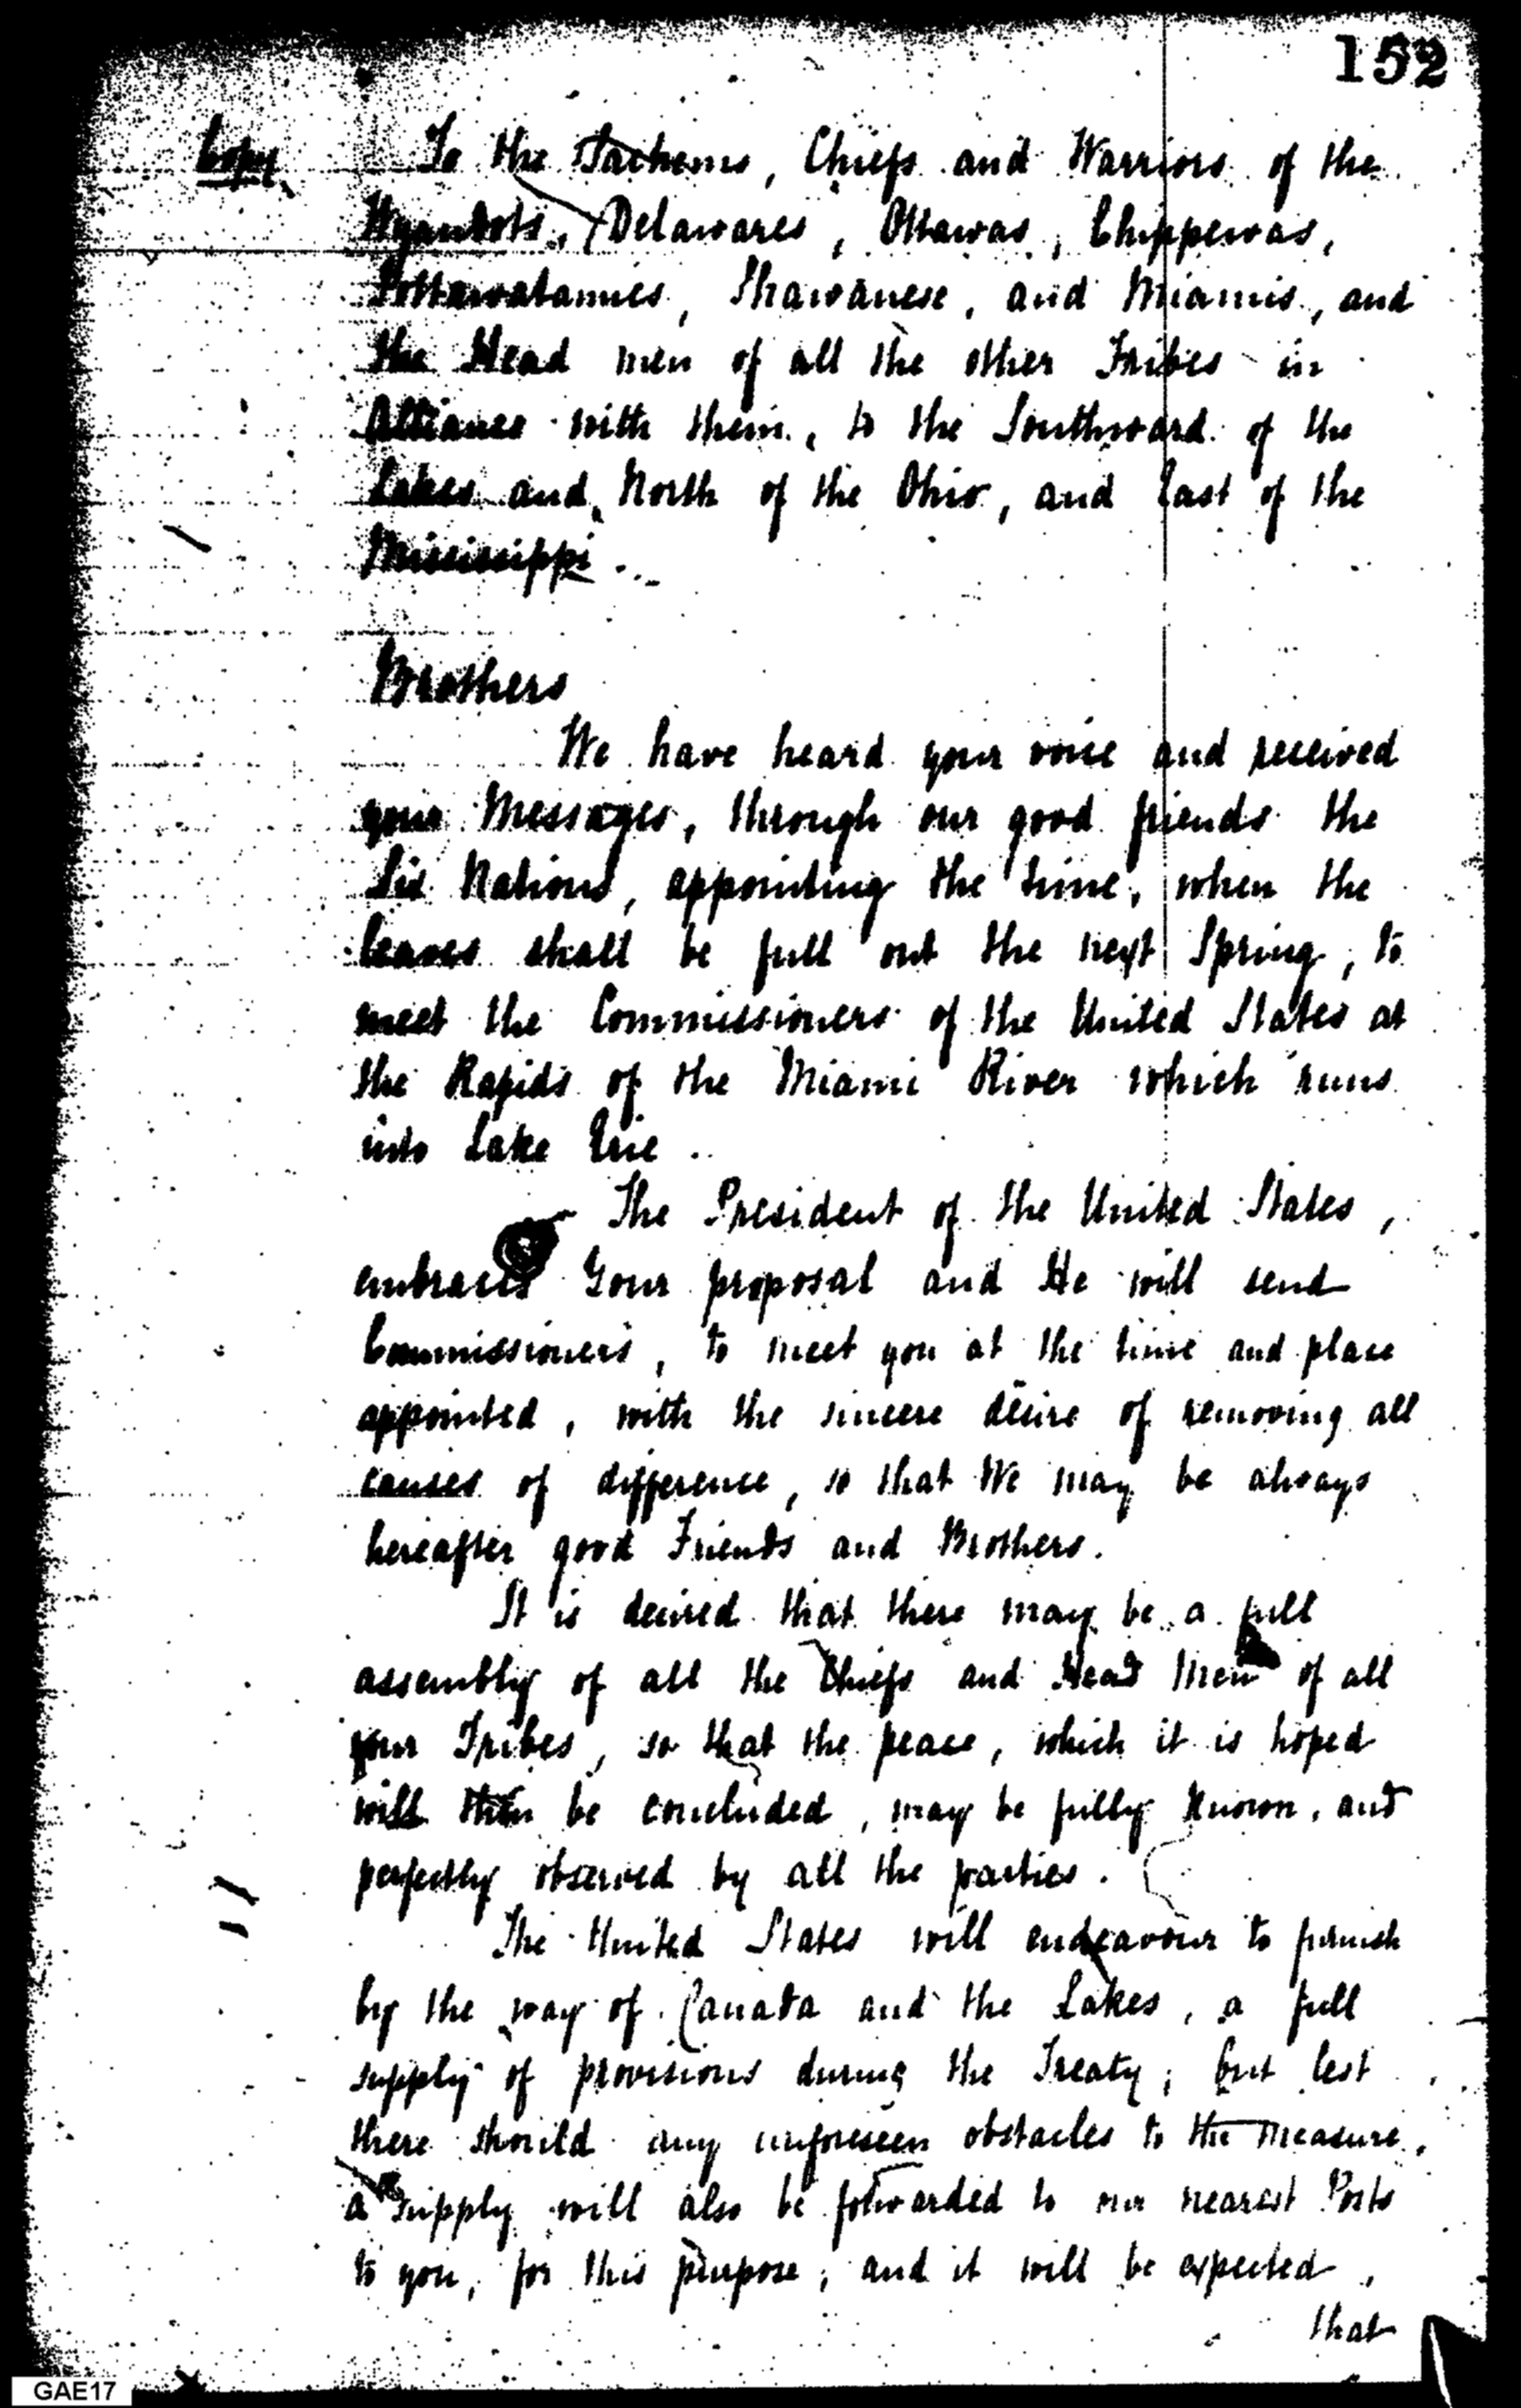 152
Copy
To the Sachems, Chiefs and Warriors of the
Wyandots, Delawares, Ottawas, Chippewas,
Pottawatamies, Shawanese, and Miamis, and
the Head men of all the other Tribes in
Alliance with them, to the Southward of the
Lakes and North of the Ohio, and East of the
Mississippi.
Brothers
We have heard your voice and received
your Messages, through our good friends the
Six Nations, appointing the time, when the
leaves shall be full out the next Spring, to
meet the Commissioners of the United States at
the Rapids of the Miami River which runs
into Lake Erie.
The President of the United States,
embraces Your proposal and He will send
Commissioners, to meet you at the time and place
appointed, with the sincere desire of removing all
causes of difference, so that We may be always
hereafter good Friends and Brothers.
It is desired that there may be a full
assembly of all the Chiefs and Head Men of all
your Tribes, so that the peace, which it is hoped
will then be concluded, may be fully known, and
perfectly observed by all the parties.
The United States will endeavour to furnish
by the way of Canada and the Lakes, a full
supply of provisions during the Treaty; but lest
there should any unforeseen obstacles to the measure,
a supply will also be forwarded to our nearest Posts
to you, for this purpose; and it will be expected,
that
GAE17